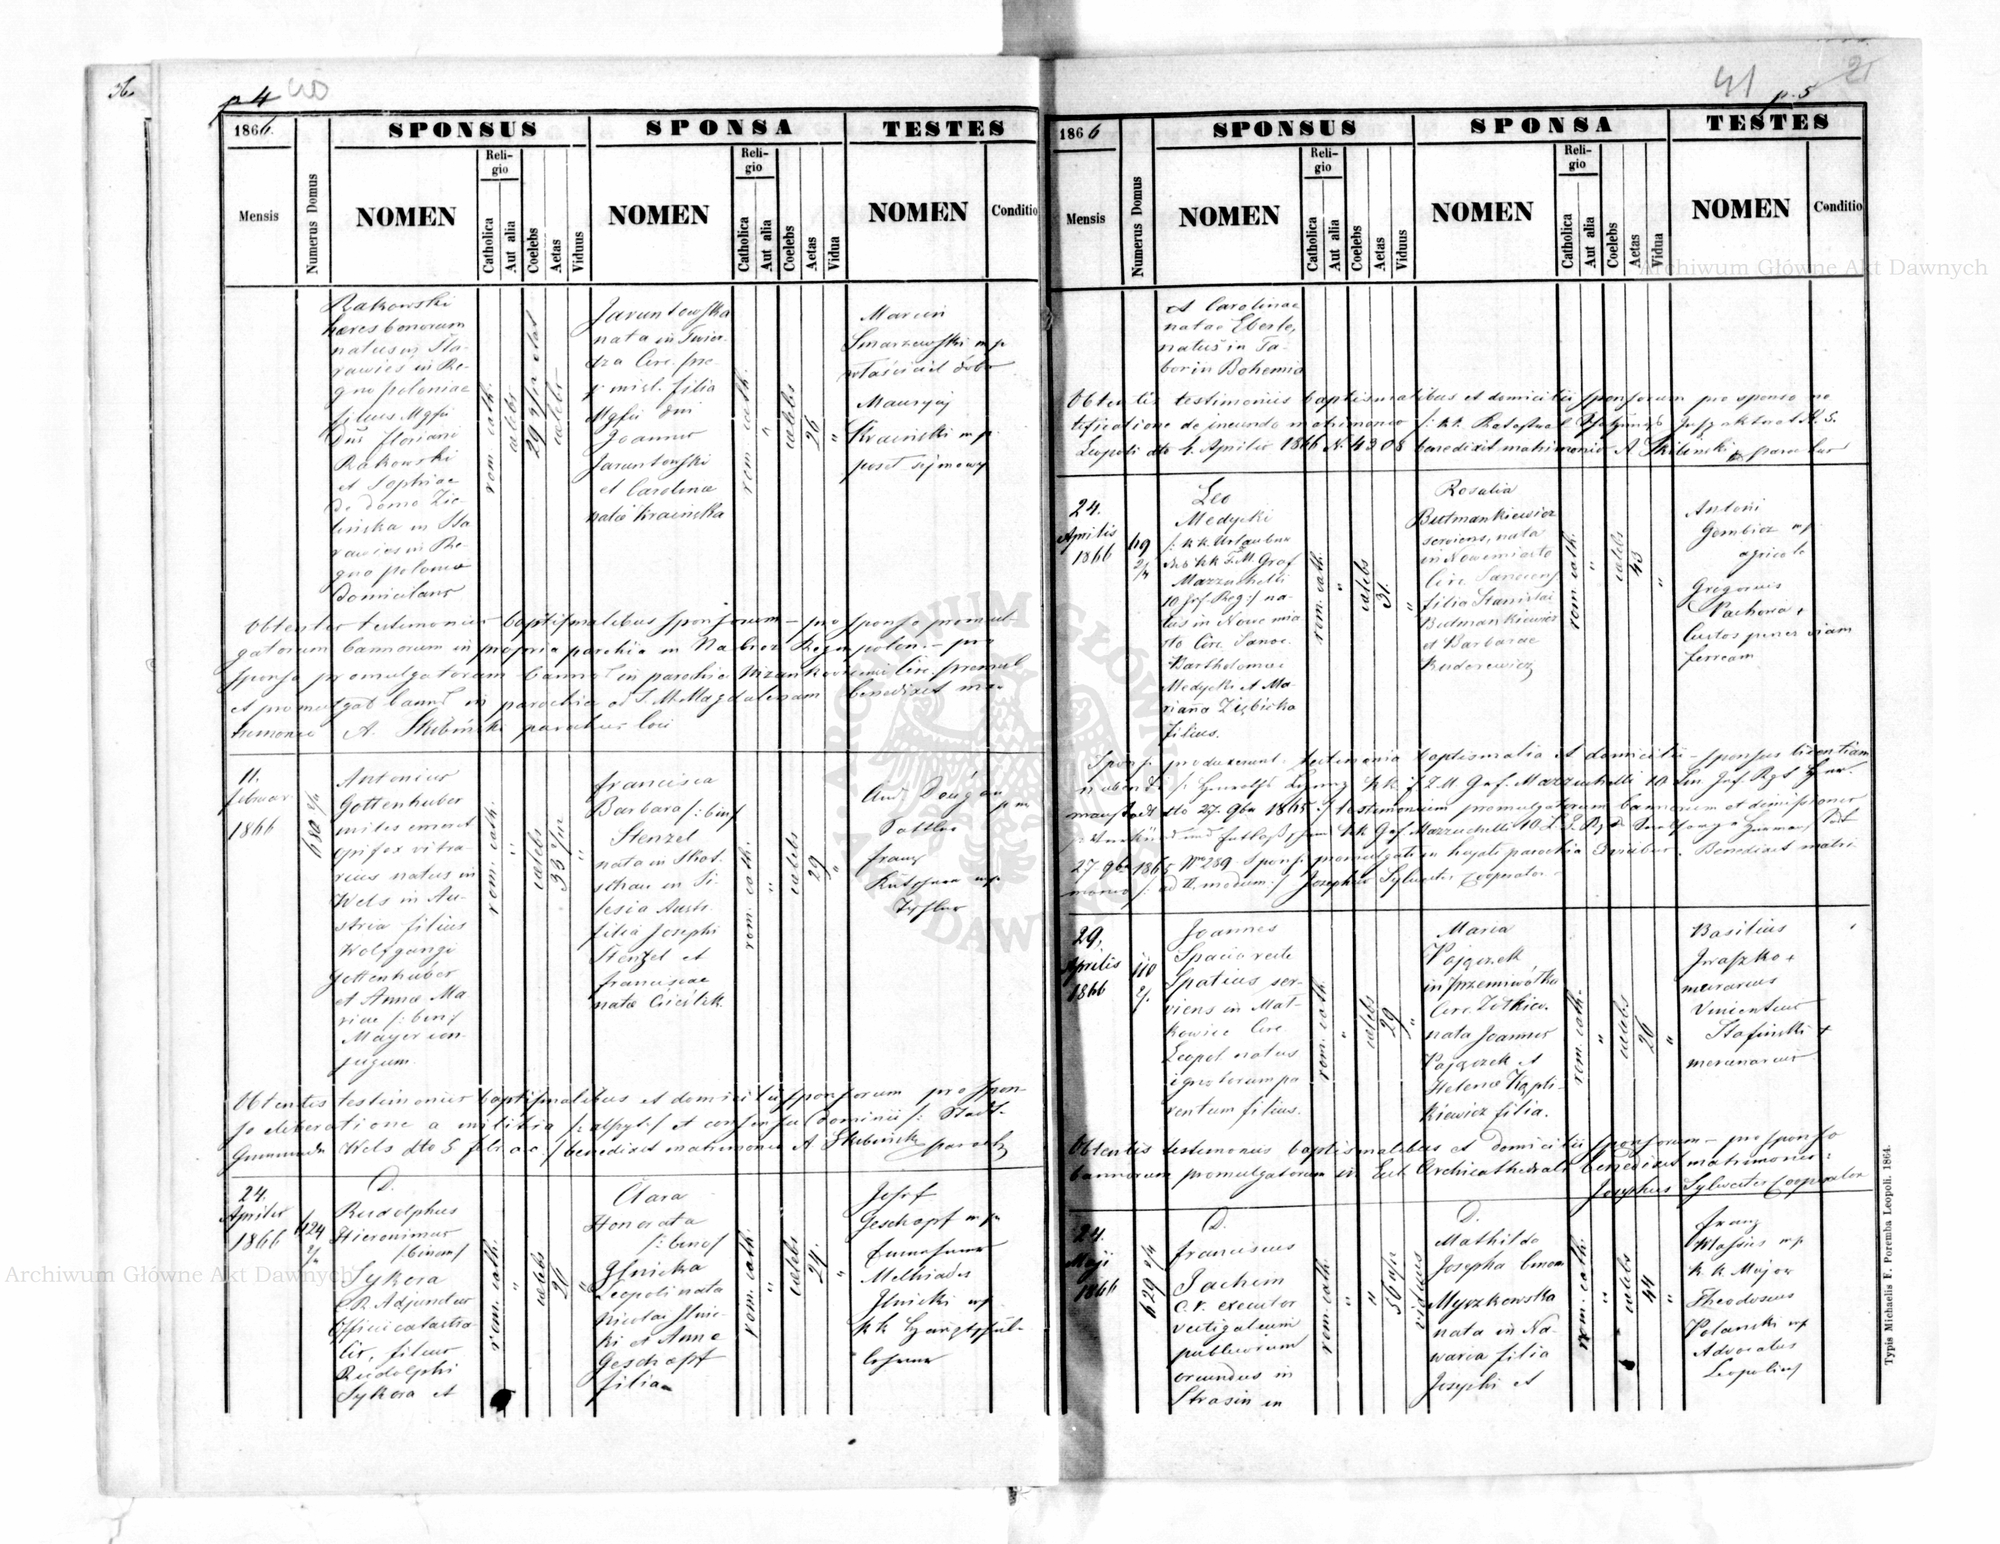 36.
p. 4 40
1866.
SPONSUS
SPONSA
TESTES
Mensis
Numerus Domus
NOMEN
Religio
Catholica
Aut alia
Coelebs
Aetas
Viduus
NOMEN
Religio
Catholica
Aut alia
Coelebs
Aetas
Vidua
NOMEN
Conditio
Rakowski
haeres bonorum
natus in Sta-
rawieś in Re-
gno poloniae
filius Mgfci
Dni Floriani
Rakowski
et Sophiae
de domo Zie-
lińska in Sta
rawies in Re-
gno poloniae
domicilians
rom. cath.
caelebs
caelebs
Jaruntowska
nata in Twier-
dza Circ. prze-
misl. filia
Mgfci Dni
Joannis
Jaruntowski
et Carolinae
natae Kraińska
rom. cath.
"
caelebs
26
"
Marcin
Smarzewski mp
właściciel dóbr
Maurycy
Kraiński mp.
poseł sejmowy
Obtentis testimoniis baptismalibus sponsorum – pro sponso promul-
gatorum bannorum in propria parochia in Nabroz Regn. polon. – pro
sponsa promulgatorum bannor. in parochia Nizankowicensi Circ. przemisl.
et promulgat. bann. in parochia ad S. M. Magdalenam benedixit ma-
trimonio A. Skibiński parochus loci
11.
Februar
1866
682 2/4
Antonius
Gottenhuber
miles emerit
opifex vitra-
rius natus in
Wels in Au-
stria filius
Wolfgangi
Gottenhuber
et Annae Ma-
riae /: bin /
Mayer con-
jugum.
rom. cath.
"
caelebs
33
"
Francisca
Barbara /: bin /
Stenzel
nata in Skot-
schau in Si-
lesia Austr.
filia Josephi
Stenzel et
Franciscae
natae Cieślik.
rom. cath.
"
caelebs
29
"
And. Dougan mp
Sattler
Franz
Kutschera mp.
Tischler
Obtentis testimoniis baptismalibus et domicilii sponsorum pro spon-
so deliberatione a militia et consensu dominii /: Stadt-
Gemeinde Wels dto 5 febr. a. c. / benedixit matrimonio A Skibiński parochus
24.
Aprilis
1866
424 2/4
D.
Rudolphus
Hieronimus
/: binom /
Sykora
C. R. Adjunctus
Officii catastra-
lis, filius
Rudolphi
Sykora et
rom. cath.
"
caelebs
26
"
Clara
Honorata
/: bino /
Ilnicka
Leopoli nata
Nicolai Ilnic-
ki et Anna
Geschöpf
filia
rom. cath.
"
caelebs
24.
"
Josef
Geschöpf mp
Melchiades
Ilnicki mp.
k k Hauptschul-
lehrer
41 p. 5 21
1866
SPONSUS
SPONSA
TESTES
Mensis
Numerus Domus
NOMEN
Religio
Catholica
Aut alia
Coelebs
Aetas
Viduus
NOMEN
Religio
Catholica
Aut alia
Coelebs
Aetas
Vidua
NOMEN
Conditio
et Carolinae
natae Eberle,
natus in Ta-
bor in Bohemia
Obtentis testimoniis baptismalibus et domicilii sponsorum pro sponso no
tificatione de ineundo matrimonio
Leopoli dto 4. Aprilis 1866 N. 4308 benedixit matrimonio A Skibiński parochus
24.
Aprilis
1866
49
2/4
Leo
Medycki
/: k k Urlauber
des k k F. M. Graf
Mazzuchelli
10 Inf. Reg :/ na-
tus in Nowe mia
sto Circ. Sanoc.
Bartholomaei
Medycki et Ma-
rianna Ziębicka
filius.
rom. cath.
"
caelebs
31.
"
Rosalia
Butmankiewicz
serviens, nata
in Nowemiasto
Circ. Sanocens
filia Stanislai
Butmankiewicz
et Barbarae
Rudorowicz
rom. cath.
"
caelebs
45
"
Antoni
Gembicz mp
agricola
Gregorius
Pachowa +
Custos penes viam
ferream
Sponsi produxerunt testimonia baptismatis et domicilii – sponsus licentiam
nubendi k k F Z M Graf Mazzuchelli 10. Lin Inf. Rgt Her-
manstadt dto 27. 9br 1865 :/ testimonium promulgatorum bannorum et dimissionis
27 9br 1865 No 289. Sponsi promulgati in hujate parochia trinibus. Benedixit matri-
monio /: ad II. modum :/ Josephus Sylwester Cooperator –
29.
Aprilis
1866
110
2/4
Joannes
Spacio recte
Spatius ser-
viens in Mal-
kowice Circ.
Leopol. natus
ignotorum pa
rentum filius.
rom. cath.
"
caelebs
29
"
Maria
Pajączek
in Przemiwółki
Circ. Zółkiew.
nata Joannis
Pajączek et
Helenae Kępti-
kiewicz filia.
rom. cath.
"
caelebs
26
"
Basilius
Iwaszko +
merarius
Vincentius
Stafinski +
mercenarius
Obtentis testimoniis baptismalibus et domicilii sponsorum – pro sponso
bannorum promulgatorum in Eccl. Archicathedrali benedixit matrimonio:
Josephus Sylwester Cooperator
24.
Maji
1866
629 2/4
D.
Franciscus
Jachim
c. r. executor
vectigalium
publicorum
oriundus in
Strasin in
rom. cath.
"
"
56
viduus
D.
Mathilda
Josepha binom
Myszkowska
nata in Na-
waria filia
Josephi et
rom. cath.
"
caelebs
44
"
Franz
Klassius mp
k. k. Major
Theodosius
Polanski mp
Advocatus
Leopolius
Typis Michaelis F. Poremba Leopoli. 1864.
Archiwum Główne Akt Dawnych
Archiwum Główne Akt Dawnych
ARCHIWUM GŁÓWNE AKT DAWNYCH